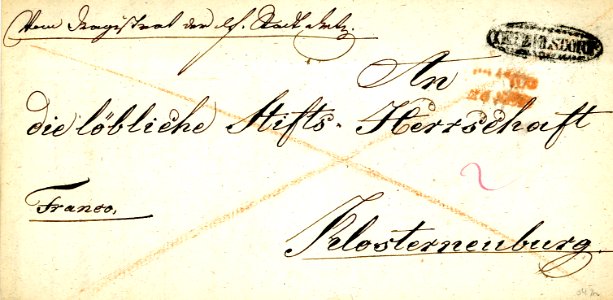 Vom Magistrat der Stadt
An
die löbliche Stifts-Herrschaft
Franco.
Klosterneuburg.